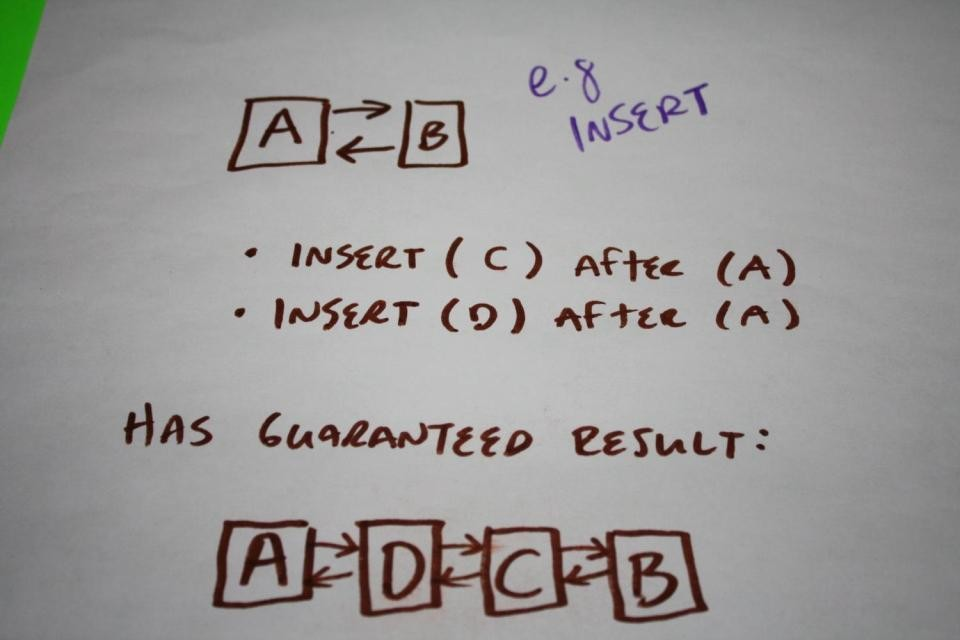 e.g
INSERT
A B
• INSERT (C) AFTER (A)
• INSERT (D) AFTER (A)
HAS GUARANTEED RESULT:
A D C B